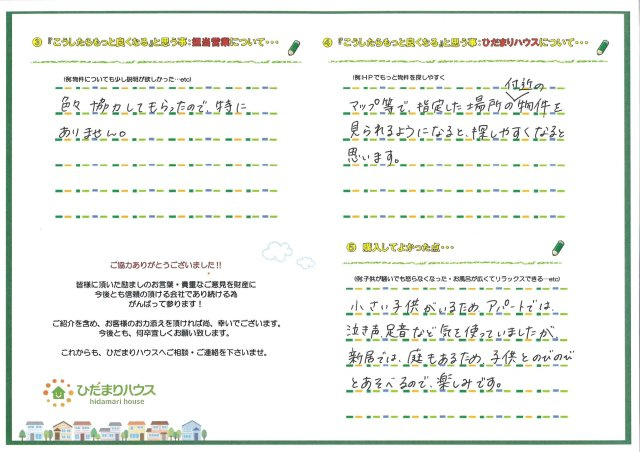 ③『こうしたらもっと良くなる』と思う事:担当営業について・・・
(例:物件についても少し説明が欲しかった…etc)
色々 協力してもらったので、特に
ありません。
ご協力ありがとうございました!!
皆様に頂いた励ましのお言葉・貴重なご意見を財産に
今後とも信頼の頂ける会社であり続ける為
がんばって参ります！
ご紹介を含め、お客様のお力添えを頂ければ尚、幸いでございます。
今後とも、何卒宜しくお願い致します。
これからも、ひだまりハウスへご相談・ご連絡を下さいませ。
ひだまりハウス
hidamari house
④『こうしたらもっと良くなる』と思う事:ひだまりハウスについて・・・
(例:HPでもっと物件を探しやすく
付近の
マップ等で、指定した場所の物件を
見られるようになると、探しやすくなると
思います。
⑤ 購入してよかった点・・・
(例:子供が騒いでも怒らなくなった・お風呂が広くてリラックスできる…etc)
小さい子供がいるため、アパートでは、
泣き声、足音など気を使っていましたが、
新居では、庭もあるため、子供とのびのび
とあそべるので、楽しみです。